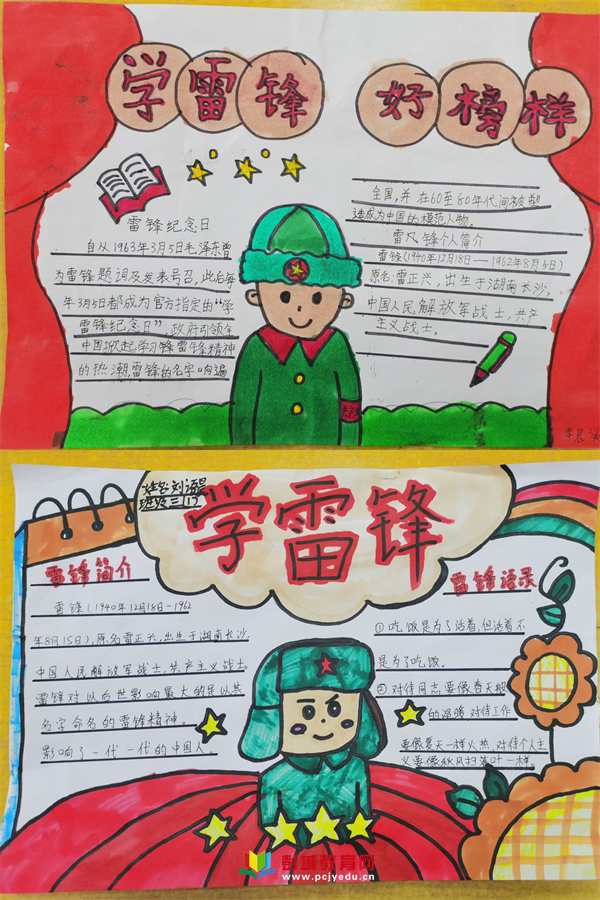 学雷锋 好榜样
雷锋纪念日
自从1963年3月5日毛泽东曾
为雷锋题词及发表号召,此后每
年3月5日都成为官方指定的“学
雷锋纪念日”,政府引领全
中国掀起学习锋雷锋精神
的热潮,雷锋的名字响遍
全国,并在60至80年代间被塑
造成为中国的模范人物。
雷锋个人简介
雷锋(1940年12月18日—1962年8月5日)
原名:雷正兴,出生于湖南长沙,
中国人民解放军战士,共产
主义战士。
李
姓名刘语
班级三
学雷锋
雷锋简介
雷锋(1940年12月18日-1962
年8月15日),原名雷正兴,出生于湖南长沙,
中国人民解放军战士,共产主义战士,
雷锋对以后世影响最大的是以其
名字命名的雷锋精神。
影响了一代一代的中国人。
雷锋语录
①吃饭是为了活着,但活着不
是为了吃饭。
②对待同志要像春天般
的温暖,对待工作
要像夏天一样火热,对待个人主
义要像秋风扫落叶一样。
彭城教育网
www.pcjyedu.cn